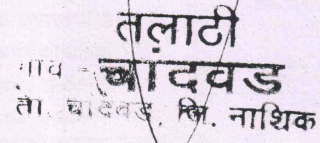 तलाठी
गाव - चांदवड
ता. चांदवड, जि. नाशिक